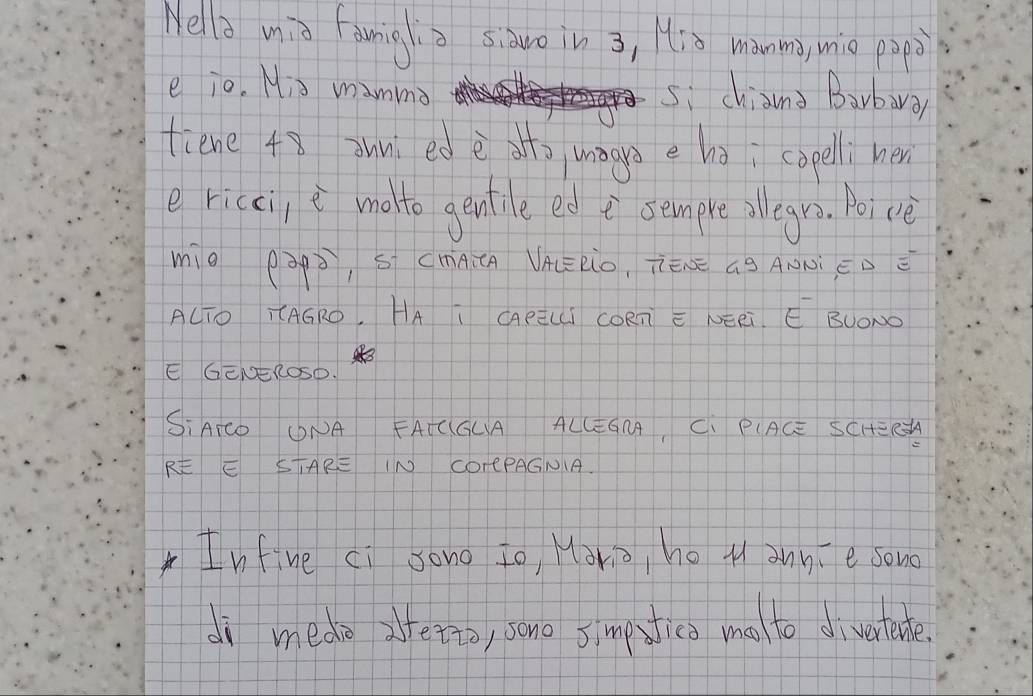 Nella mia famiglia siamo in 3, Mia mamma, mio papà
e io. Mia mamma si chiama Barbara,
tiene 48 anni ed è alta, magra e ha i capelli neri
e ricci, è molto gentile ed è sempre allegra. Poi c'è
mio papà, si CHIAMA VALERIO, TIENE 49 ANNI, ED È
ALTO MAGRO. HA I CAPELLI CORTI E NERI. È BUONO
E GENEROSO. *
SIAMO UNA FAMIGLIA ALLEGRA, CI PIACE SCHERZA
RE E STARE IN COMPAGNIA.
* Infine ci sono Io, Maria, ho 11 anni e sono
di media altezza, sono simpatica molto divertente.